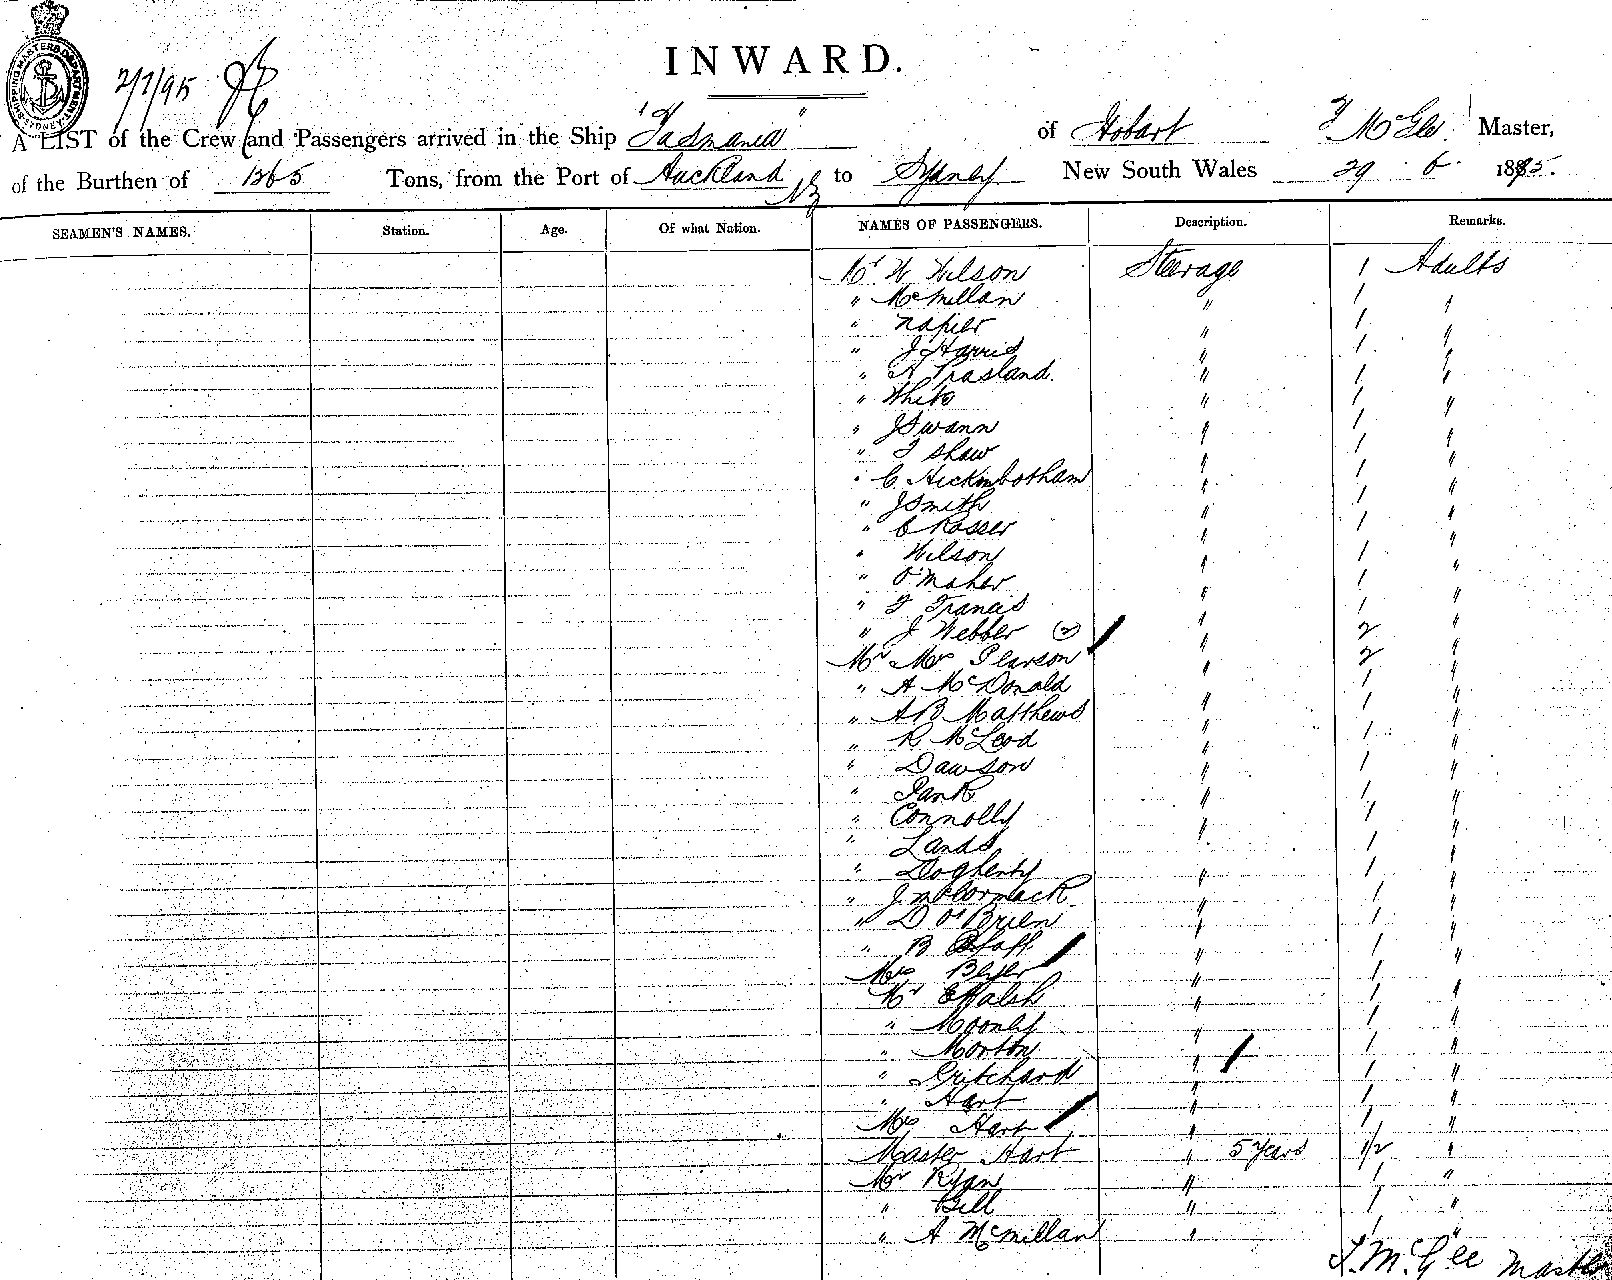 SHIPPING MASTERS DEPARTMENT SYDNEY
2/7/95
INWARD.
A LIST of the Crew and Passengers arrived in the Ship "Tasmania" of Hobart T McGee Master,
of the Burthen of 1265 Tons, from the Port of Auckland NZ to Sydney New South Wales 29 . 6 . 1895.
SEAMEN'S NAMES. Station. Age. Of what Nation. NAMES OF PASSENGERS. Description. Remarks.
Mr W Wilson Steerage 1 Adults
" McMillan " 1 "
" Napier " 1 "
" J Harris " 1 "
" A Prasland. " 1 "
" White " 1 "
" J Swann " 1 "
" T Shaw " 1 "
" C. Hickinbotham " 1 "
" J Smith " 1 "
" C Rosser " 1 "
" Wilson " 1 "
" O'Maher " 1 "
" F Francis " 1 "
" J Webber (2) " 2 "
Mr Mrs Pearson " 2 "
" A McDonald " 1 "
" A B Matthews " 1 "
" R McLeod " 1 "
" Dawson " 1 "
" Jank " 1 "
" Connolly " 1 "
" Lands " 1 "
" Dogherty " 1 "
" J McCormack " 1 "
" D O'Brien " 1 "
" B Pfaff " 1 "
Mrs Beyer " 1 "
Mr E Walsh " 1 "
" Mooney " 1 "
" Morton " 1 "
" Pritchard " 1 "
" Hart " 1 "
Mrs Hart " 1 "
Master Hart " 5 Years 1/2 "
Mr Ryan " 1 "
" Bell " 1 "
" A McMillan " 1 "
T. McGee Master